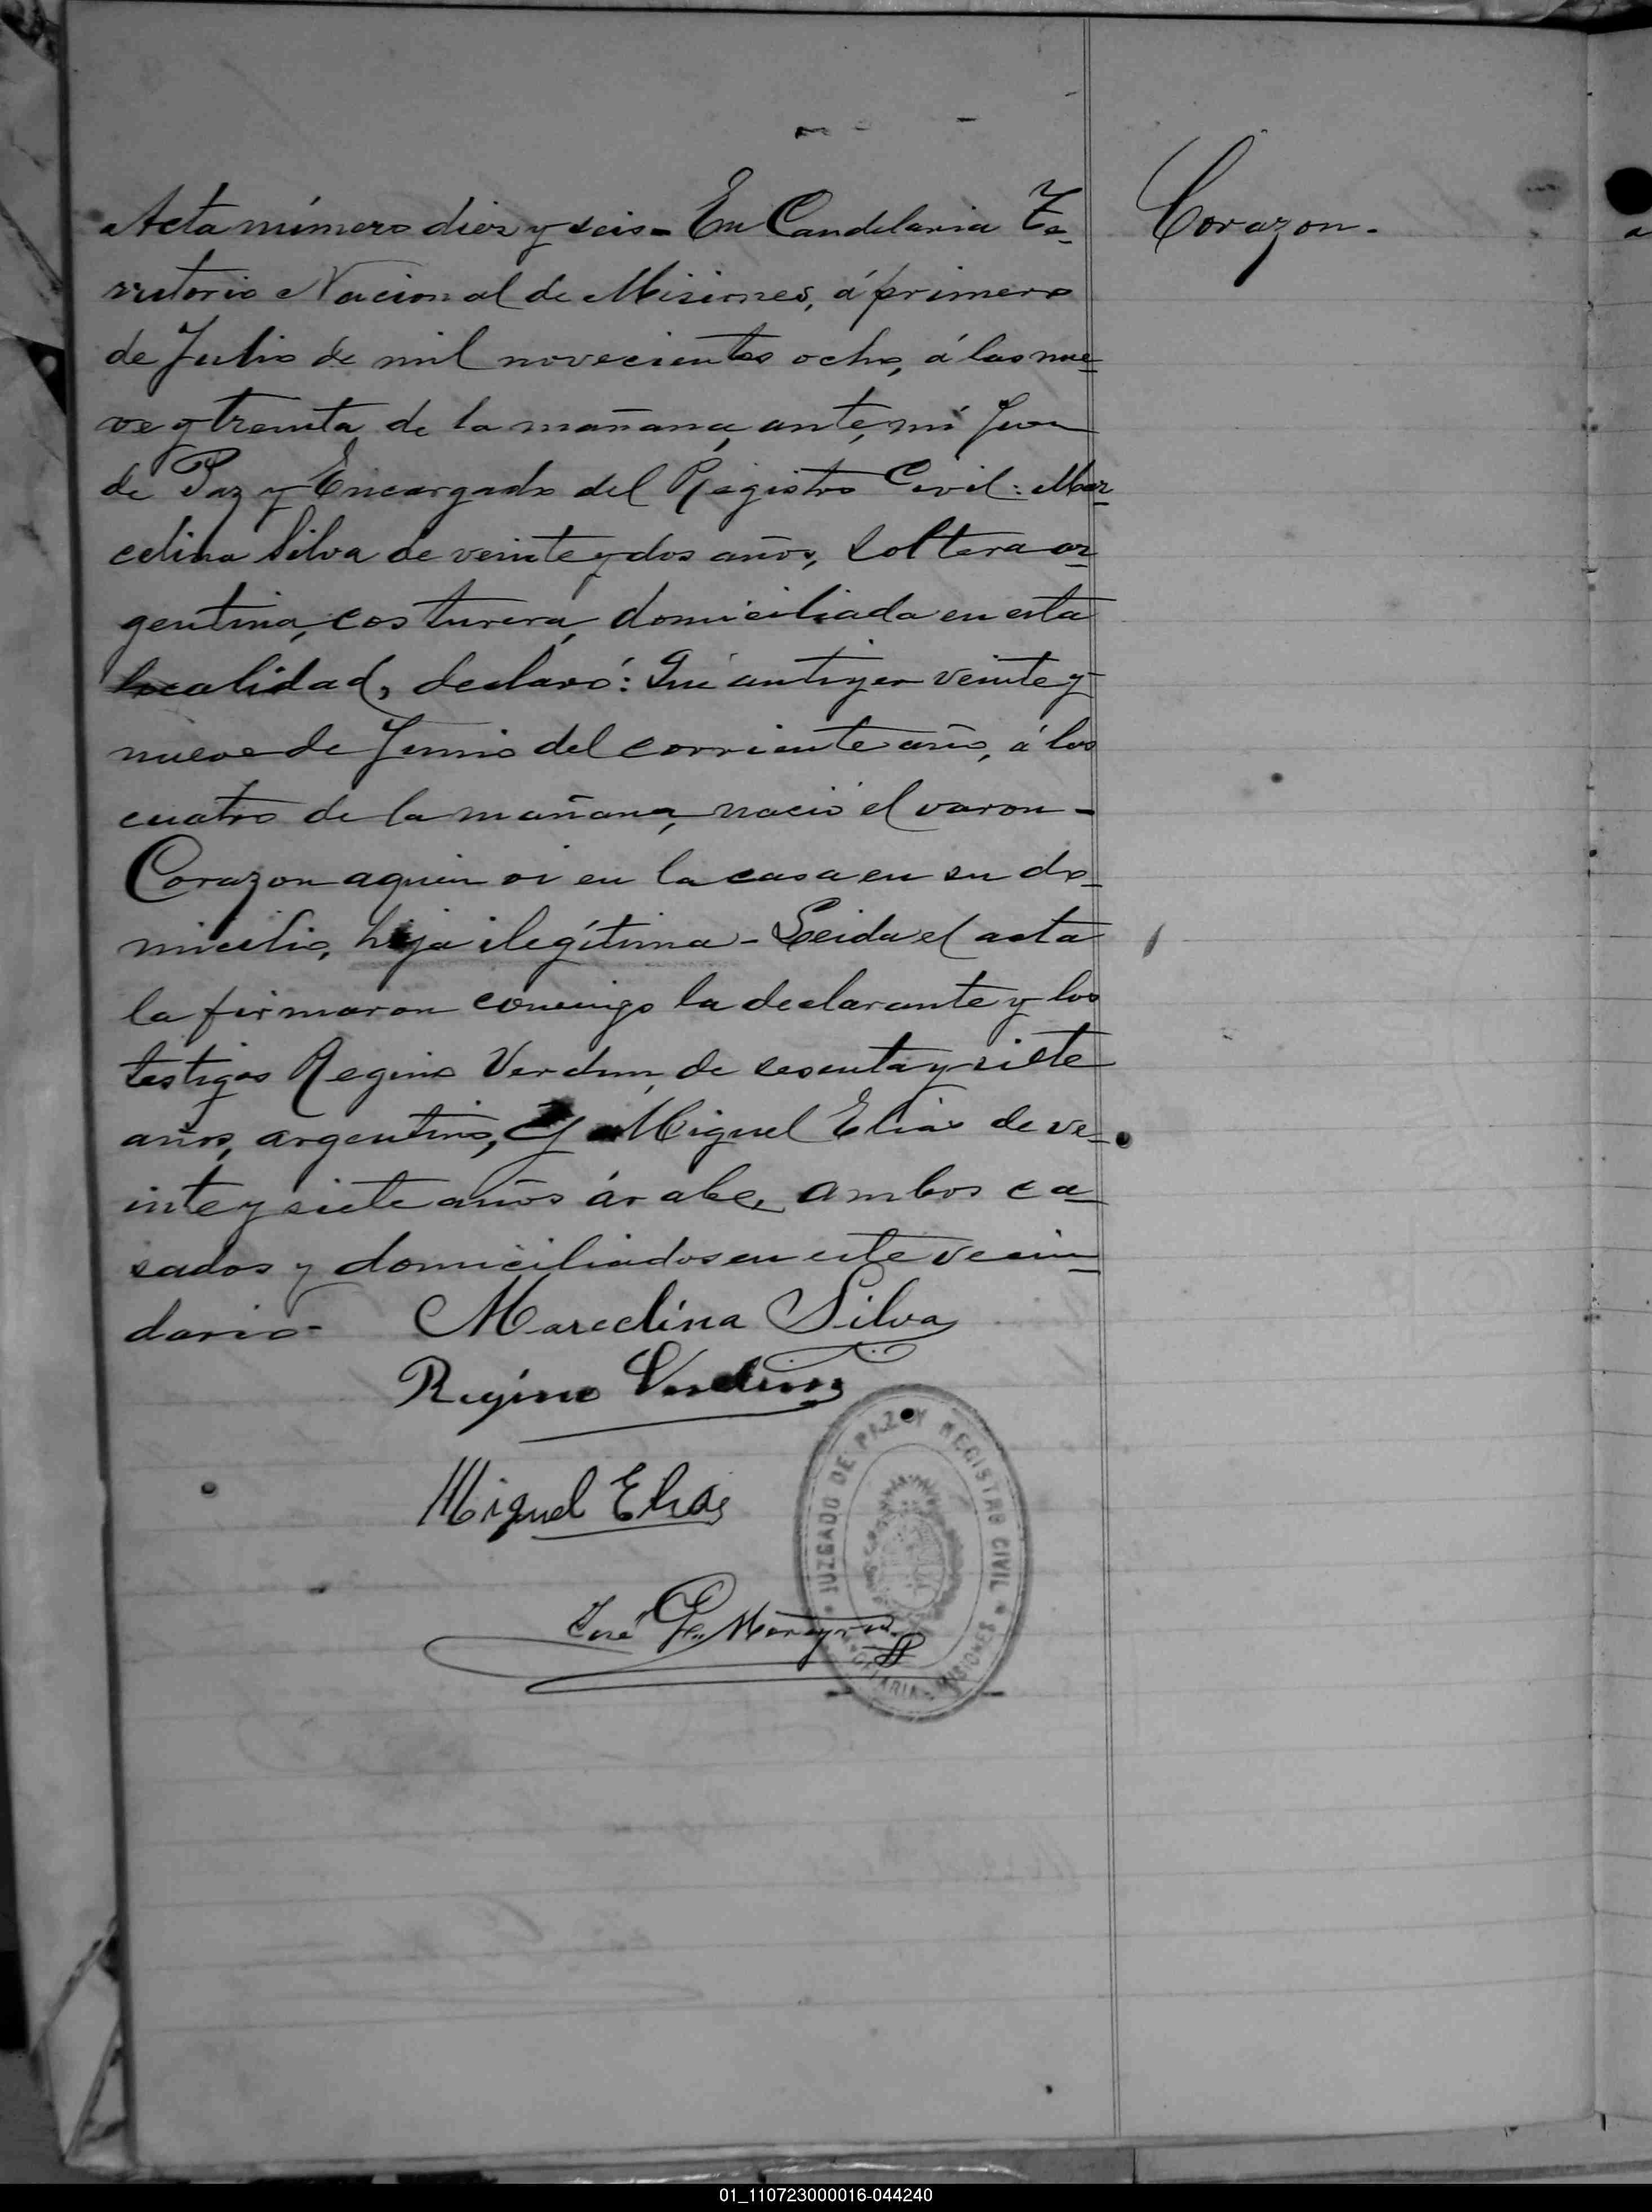 Acta número diez y seis - En Candelaria Te-
rritorio Nacional de Misiones, á primero
de Julio de mil novecientos ocho, á las nue-
ve y treinta de la mañana, ante mí Juez
de Paz y Encargado del Registro Civil: Mar-
celina Silva de veinte y dos años, soltera ar-
gentina, costurera, domiciliada en esta
localidad, declaró: Que antiyer veinte y
nueve de Junio del corriente año, á las
cuatro de la mañana, nació el varon -
Corazon aquien vi en la casa en su do-
micilio, hija ilegítima - Leida el acta
la firmaron conmigo la declarante y los
testigos Regino Verdun, de sesenta y siete
años, argentino, y Miguel Elias de ve-
inte y siete años árabe, ambos ca-
sados y domiciliados en este vecin-
dario -
Marcelina Silva
Regino Verdun
Miguel Elias
José
Corazon.
JUZGADO DE PAZ Y REGISTRO CIVIL
MISIONES
01_110723000016-044240